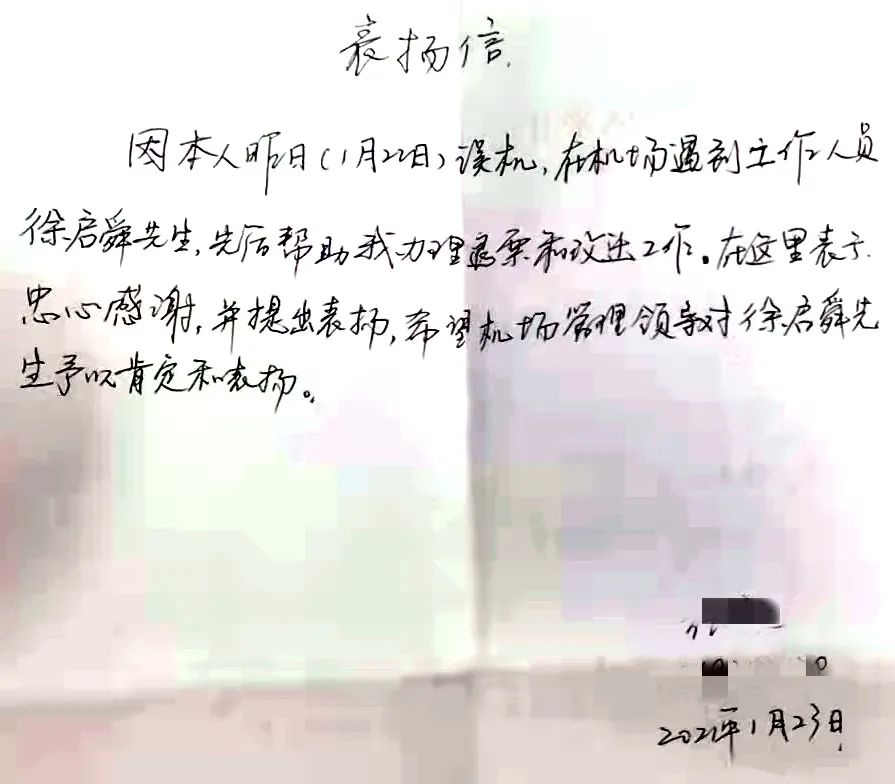 表扬信
因本人昨日(1月22日)误机,在机场遇到工作人员
徐启舜先生,先后帮助我办理退票和改迁工作。在这里表示
忠心感谢,并提出表扬,希望机场管理领导对徐启舜先
生予以肯定和表扬。
2021年1月23日